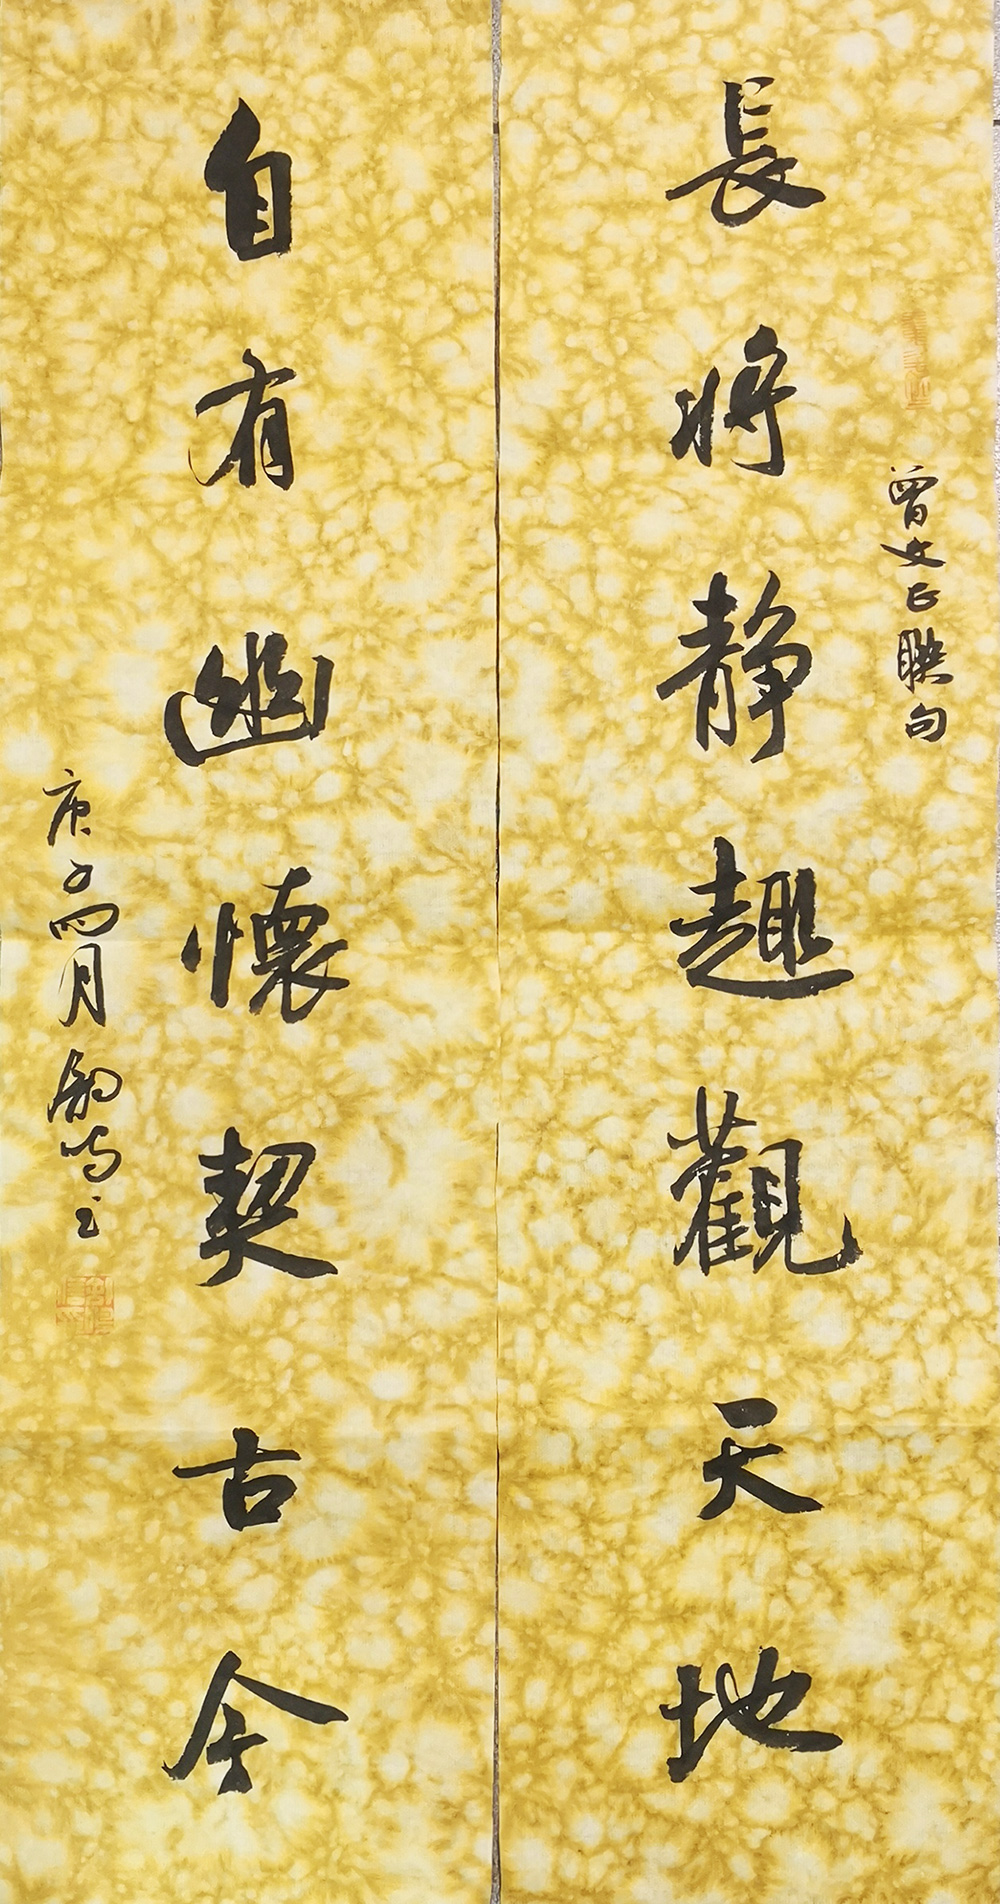 長將静趣觀天地
曾文正聯句
自有幽懷契古今
庚子四月